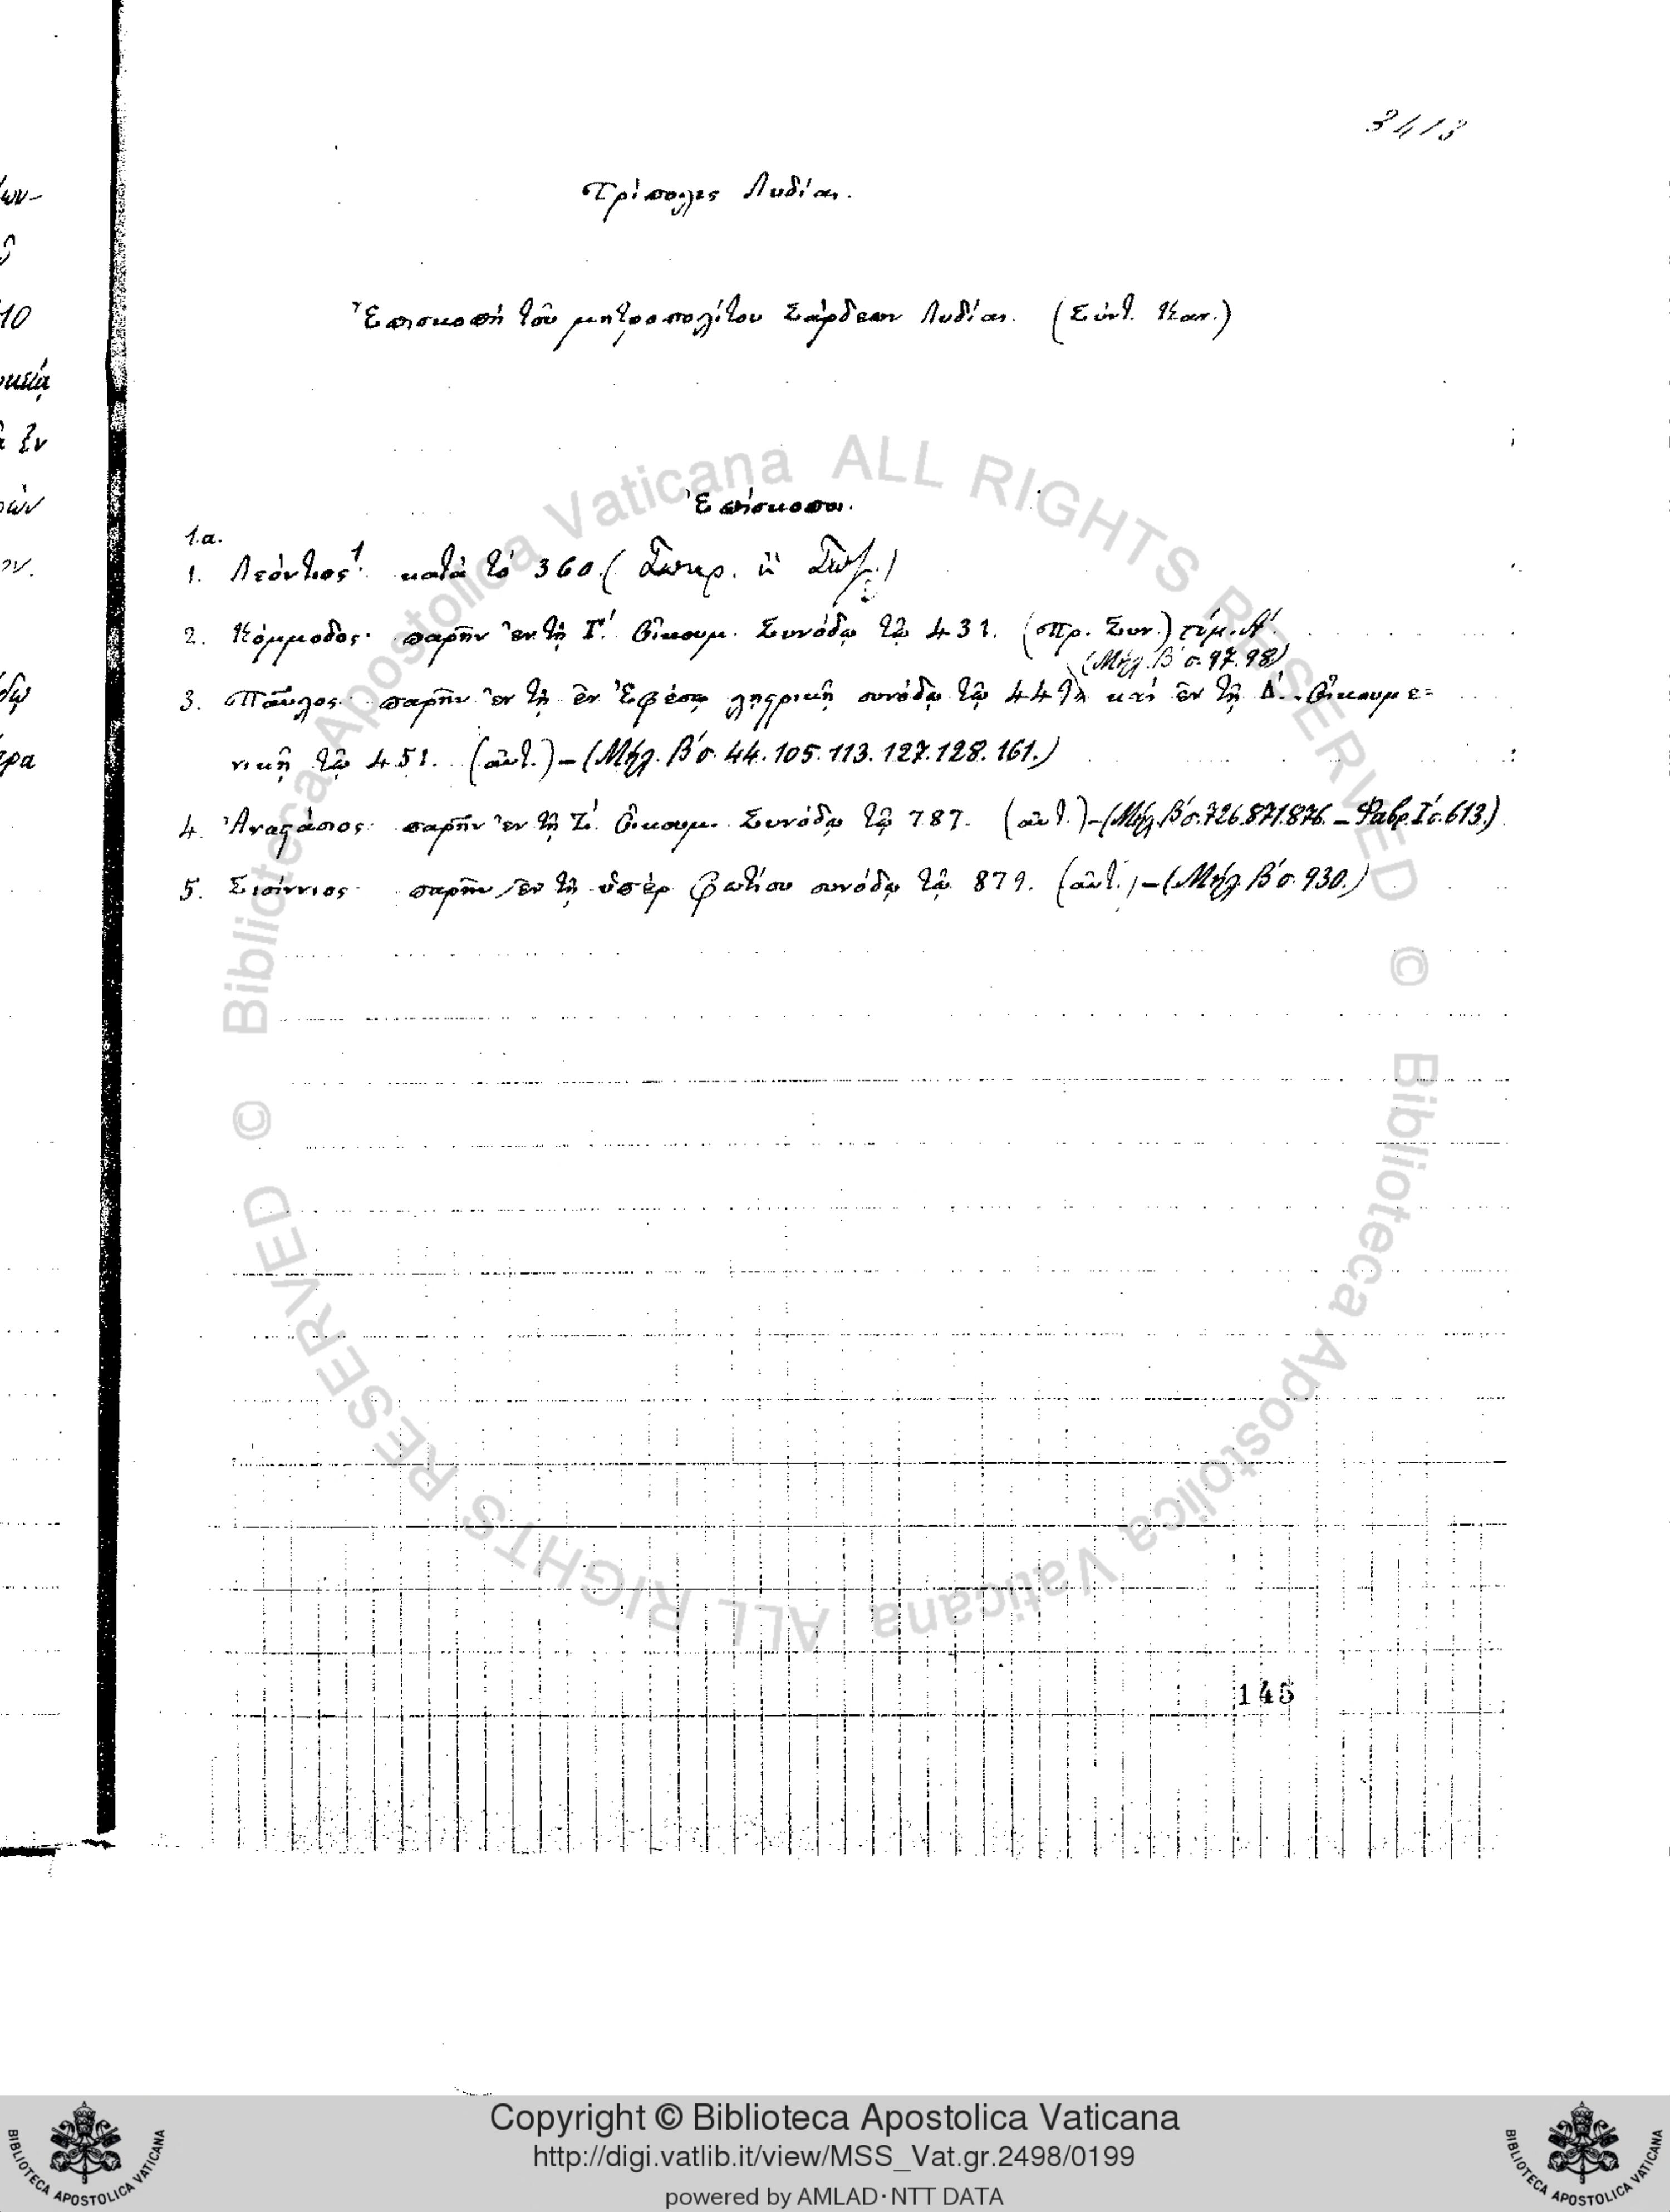 3413
Τρίπολις Λυδίας.
Ἐπισκοπὴ τοῦ μητροπολίτου Σάρδεων Λυδίας. (Σύντ. Καν.)
Ἐπίσκοποι.
1.α.
1. Λεόντιος¹· κατὰ τὸ 360. (Σωκρ. ἢ Σωζ.)
2. Κόμμοδος· παρῆν ἐν τῇ Γ΄. Οἰκουμ. Συνόδῳ τῷ 431. (Πρ. Συν.) τόμ. Α΄.
(Μηλ. Β΄ σ. 97. 98)
3. Παῦλος· παρῆν ἐν τῇ ἐν Ἐφέσῳ λῃστρικῇ συνόδῳ τῷ 449 καὶ ἐν τῇ Δ΄. Οἰκουμε=
νικῇ τῷ 451. (αὐτ.) – (Μηλ. Β΄ σ. 44. 105. 113. 127. 128. 161.)
4. Ἀναστάσιος· παρῆν ἐν τῇ Ζ΄. Οἰκουμ. Συνόδῳ τῷ 787. (αὐτ.) – (Μηλ. Β΄ σ. 726. 871. 876. – Φαβρ. Ι΄ σ. 613.)
5. Σισίννιος· παρῆν ἐν τῇ ὑπὲρ Φωτίου συνόδῳ τῷ 879. (αὐτ.) – (Μηλ. Β΄ σ. 930.)
145
Biblioteca Apostolica Vaticana ALL RIGHTS RESERVED © Biblioteca Apostolica Vaticana ALL RIGHTS RESERVED ©
Copyright © Biblioteca Apostolica Vaticana
http://digi.vatlib.it/view/MSS_Vat.gr.2498/0199
powered by AMLAD·NTT DATA
BIBLIOTECA APOSTOLICA VATICANA
BIBLIOTECA APOSTOLICA VATICANA